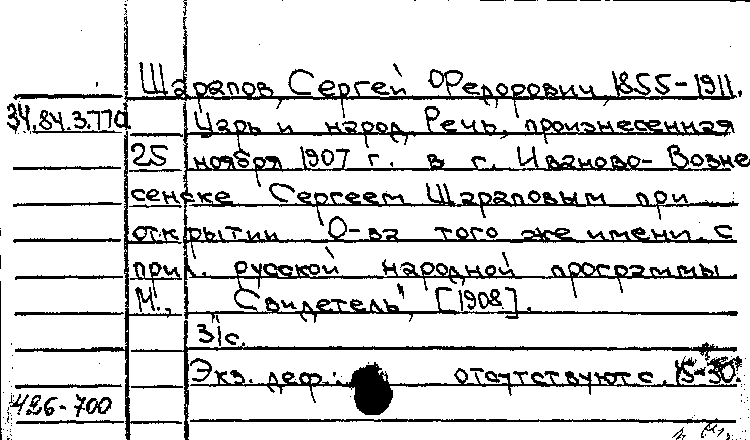 Шарапов, Сергей Федорович, 1855-1911.
34.84.3.770. Царь и народ. Речь, произнесенная
25 ноября 1907 г. в г. Иваново-Возне
сенске Сергеем Шараповым при
открытии О-ва того же имени. С
прил. русской народной программы.
М., "Свидетель", [1908].
31с.
Экз. деф.: отсутствуют с. 15-30.
426-700